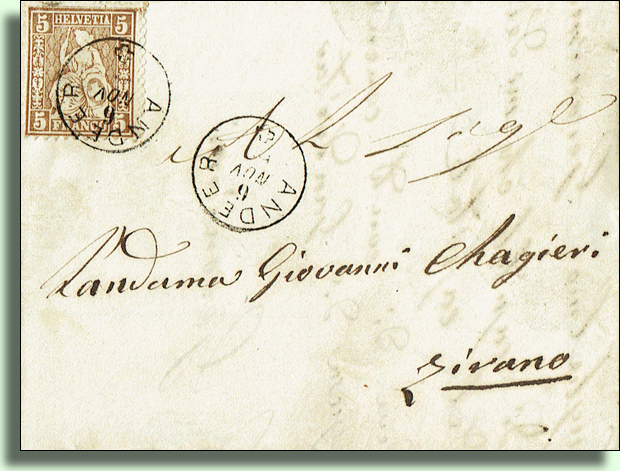 5 HELVETIA 5
5 FRANCO 5
ANDEER
9 NOV
ANDEER
9 NOV
Al Sigr
Landama Giovanni Chagieri
Zirano